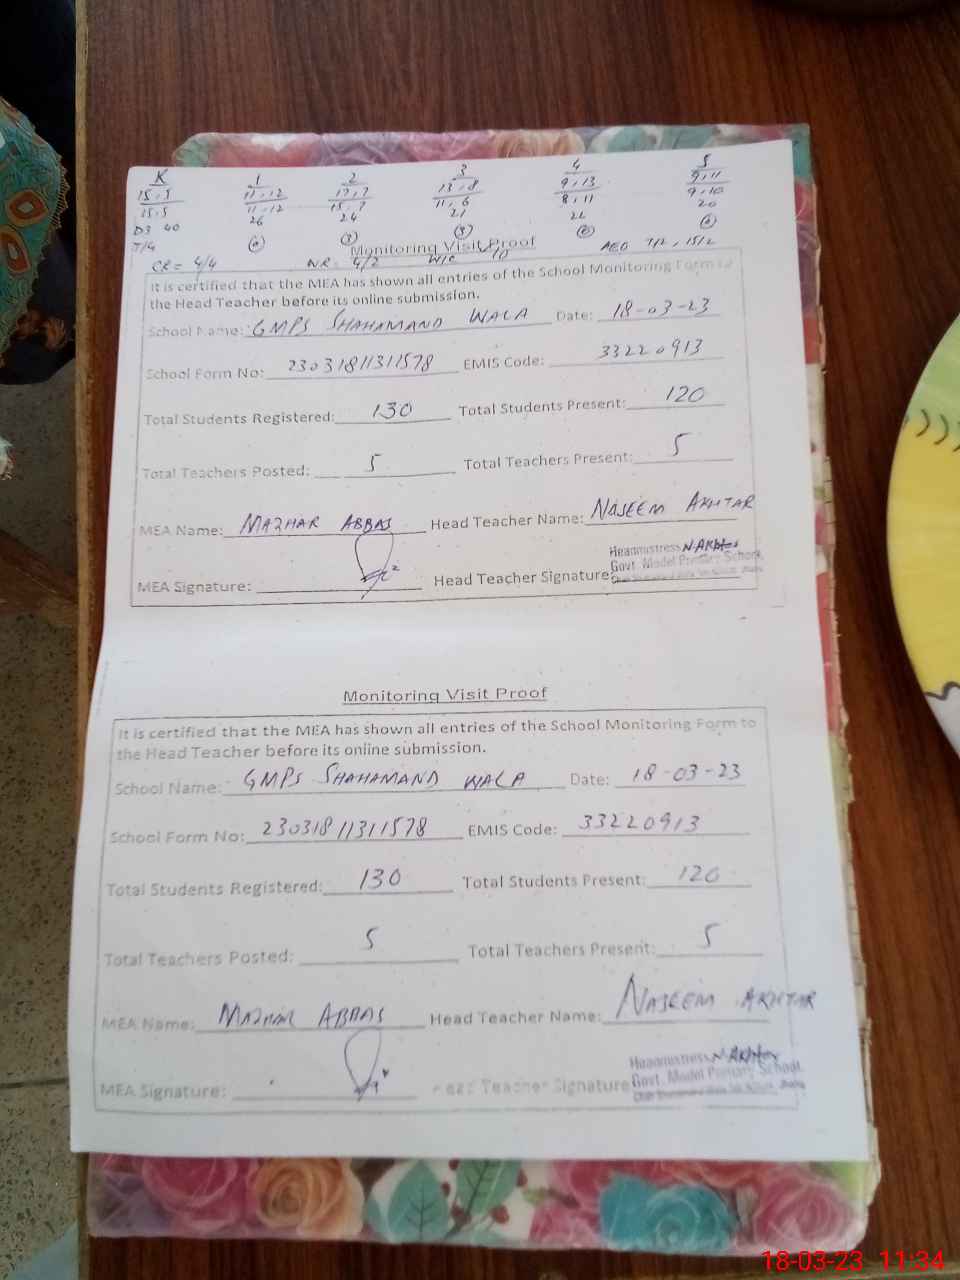 K 1 2 3 4 5
15.5 11.12 17.7 13.8 9.13 9.11
15.5 11.12 15.7 11.6 8.11 9.10
26 24 21 22 20
D3 40
T/4
AEO 7/2, 15/2
Monitoring Visit Proof
CR = 4/4 NR: 4/2 W/C 10
It is certified that the MEA has shown all entries of the School Monitoring Form to
the Head Teacher before its online submission.
School Name: GMPS SHAHAMAND WALA Date: 18-03-23
School Form No: 23031811311578 EMIS Code: 33220913
Total Students Registered: 130 Total Students Present: 120
Total Teachers Posted: 5 Total Teachers Present: 5
MEA Name: MAZHAR ABBAS Head Teacher Name: NASEEM AKHTAR
Headmistress N.Akhtar
Govt. Model Primary School
MEA Signature: Head Teacher Signature
Monitoring Visit Proof
It is certified that the MEA has shown all entries of the School Monitoring Form to
the Head Teacher before its online submission.
School Name: GMPS SHAHAMAND WALA Date: 18-03-23
School Form No: 23031811311578 EMIS Code: 33220913
Total Students Registered: 130 Total Students Present: 120
Total Teachers Posted: 5 Total Teachers Present: 5
MEA Name: MAZHAR ABBAS Head Teacher Name: NASEEM AKHTAR
Headmistress N.Akhtar
Govt. Model Primary School
MEA Signature: Head Teacher Signature
18-03-23 11:34